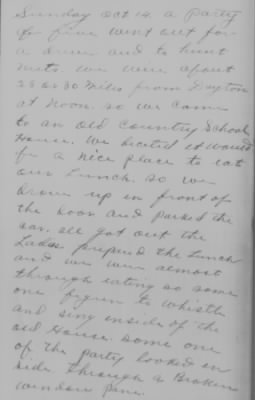 Sunday Oct 14. a party
of five went out for
a drive and to hunt
nuts we were about
28 or 30 miles from Dayton
at noon. so we came
to an old Country School
House. We decided it would
be a nice place to eat
our Lunch. so we
drove up in front of
the door and parked the
car. all got out the
Ladies prepared the Lunch
and we were almost
through eating so some
one began to whistle
and sing inside of the
old House. some one
of the party looked in
side through a Broken
window pane.